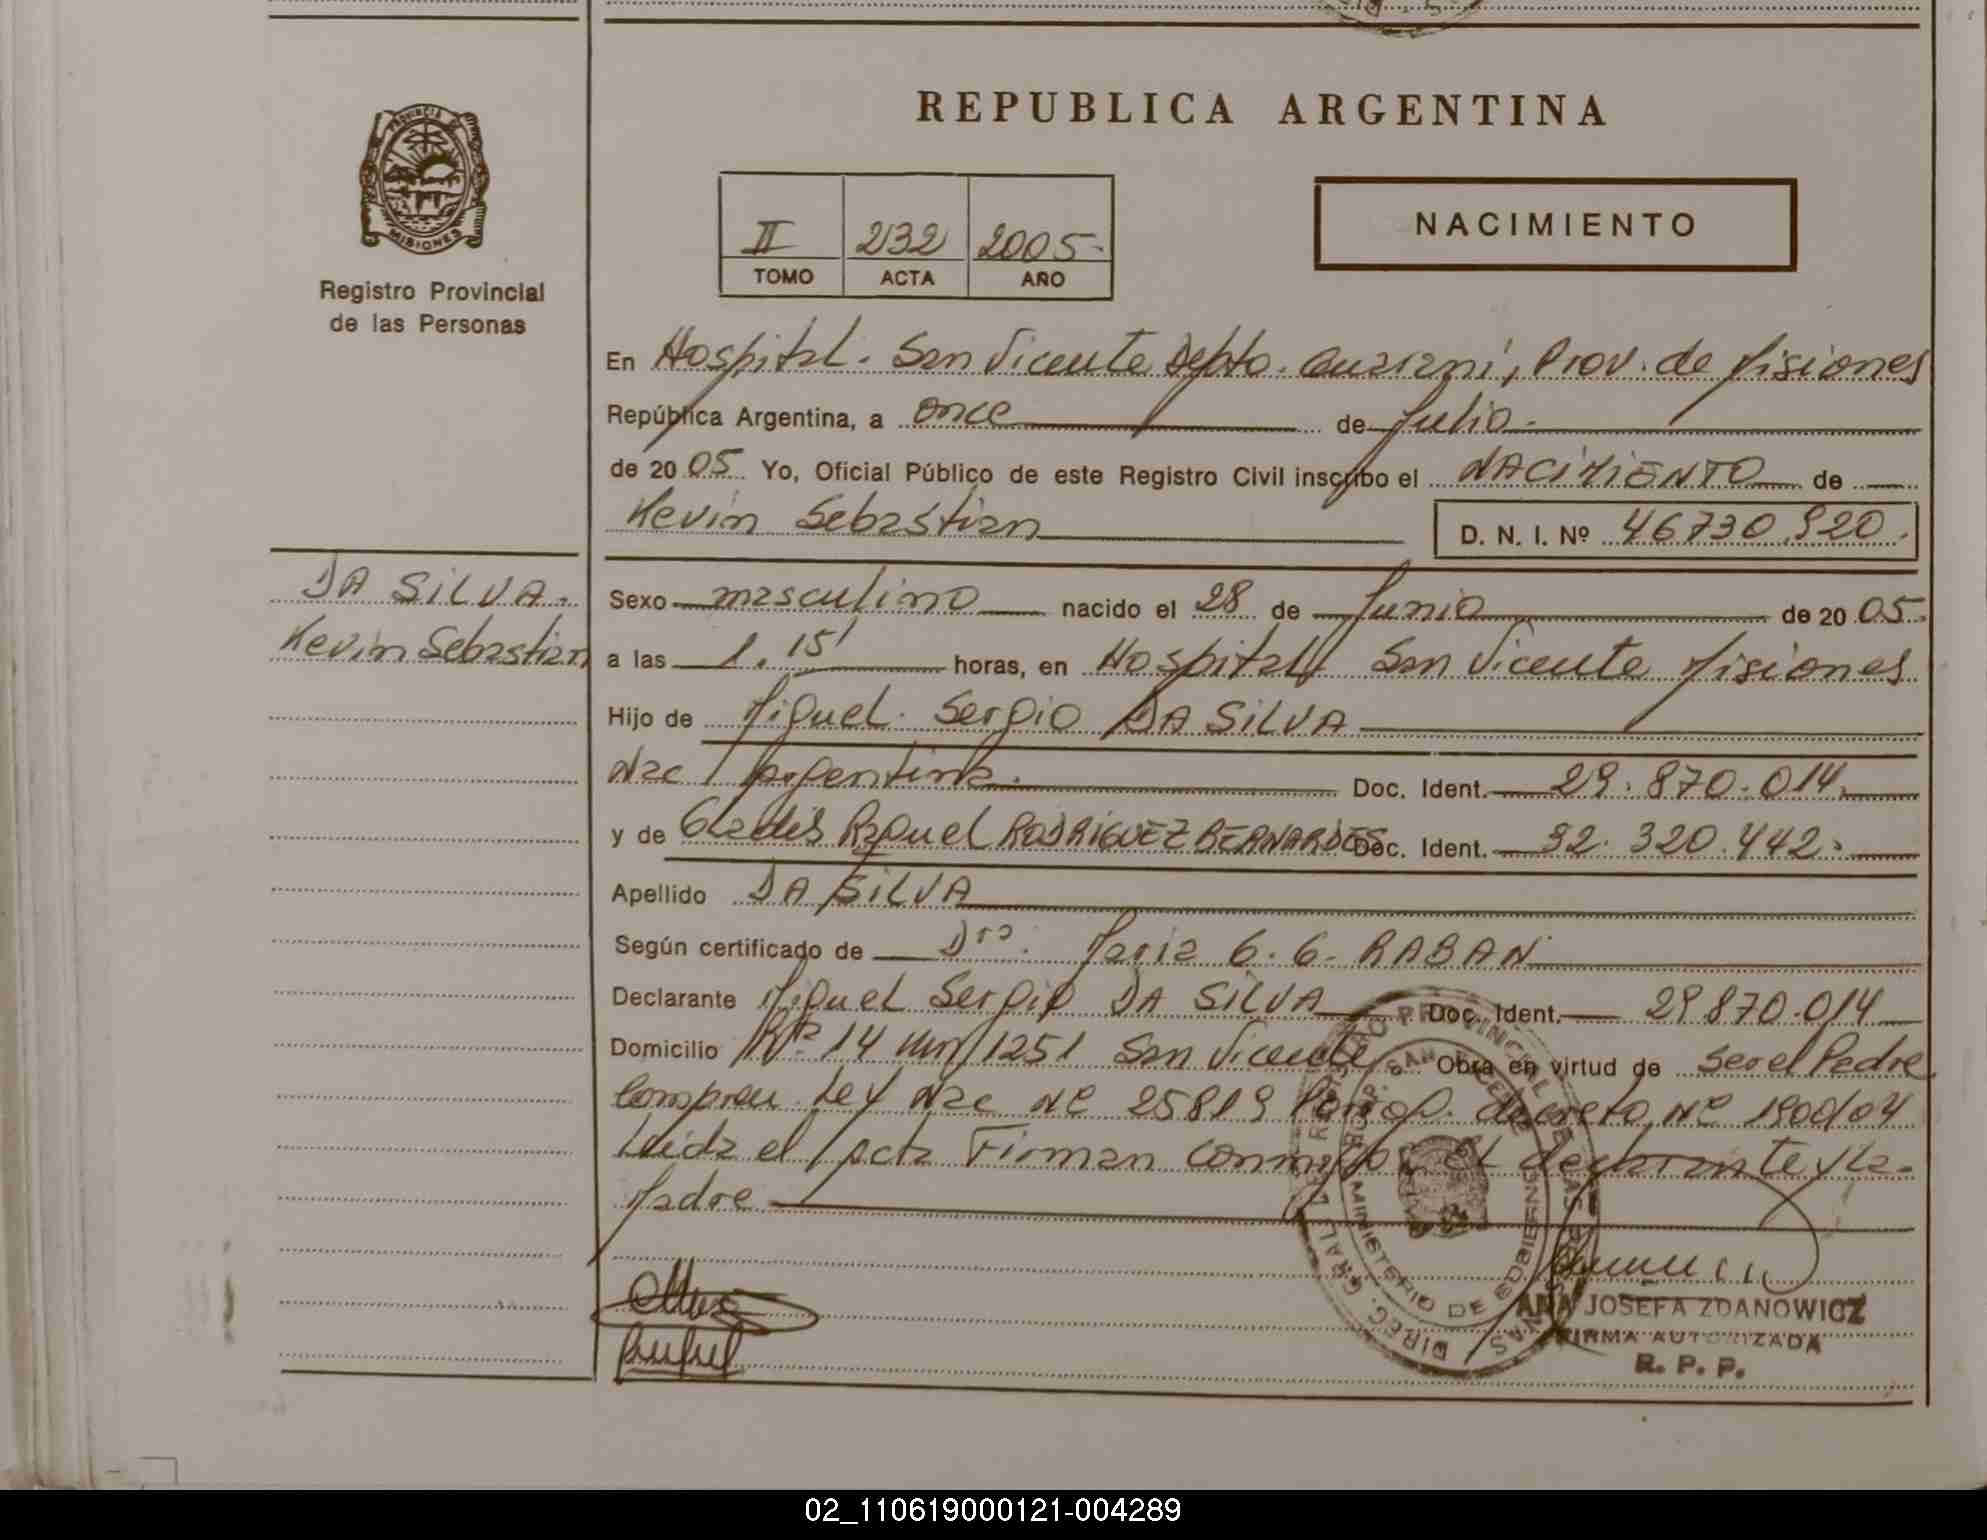 REPUBLICA ARGENTINA
PROVINCIA DE
MISIONES
Registro Provincial
de las Personas
II 232 2005
TOMO ACTA AÑO
NACIMIENTO
En Hospital. San Vicente Depto. Guarani, Prov. de Misiones
República Argentina, a once de Julio
de 2005 Yo, Oficial Público de este Registro Civil inscribo el NACIMIENTO de
Kevin Sebastian D. N. I. Nº 46730.920.
DA SILVA.
Kevin Sebastian
Sexo masculino nacido el 28 de Junio de 2005.
a las 1.15' horas, en Hospital San Vicente Misiones
Hijo de Miguel. Sergio DA SILVA
Nac Argentina. Doc. Ident. 29.870.014.
y de Gladis Raquel RODRIGUEZ BERNARDES Doc. Ident. 32.320.442.
Apellido DA SILVA
Según certificado de Dra. Maria G. G. RABAN
Declarante Miguel Sergio DA SILVA Doc. Ident. 29870.014
Domicilio 14 Km 1251 San Vicente Obra en virtud de Ser el Padre
Ley Nac Nº 25819 decreto Nº 1900/04
Leida el Acta Firman conmigo el declarante y la
Madre
DIREC. GRAL. DEL REGISTRO PROVINCIAL DE LAS PERSONAS
MINISTERIO DE GOBIERNO
ANA JOSEFA ZDANOWICZ
FIRMA AUTORIZADA
R. P. P.
02_110619000121-004289